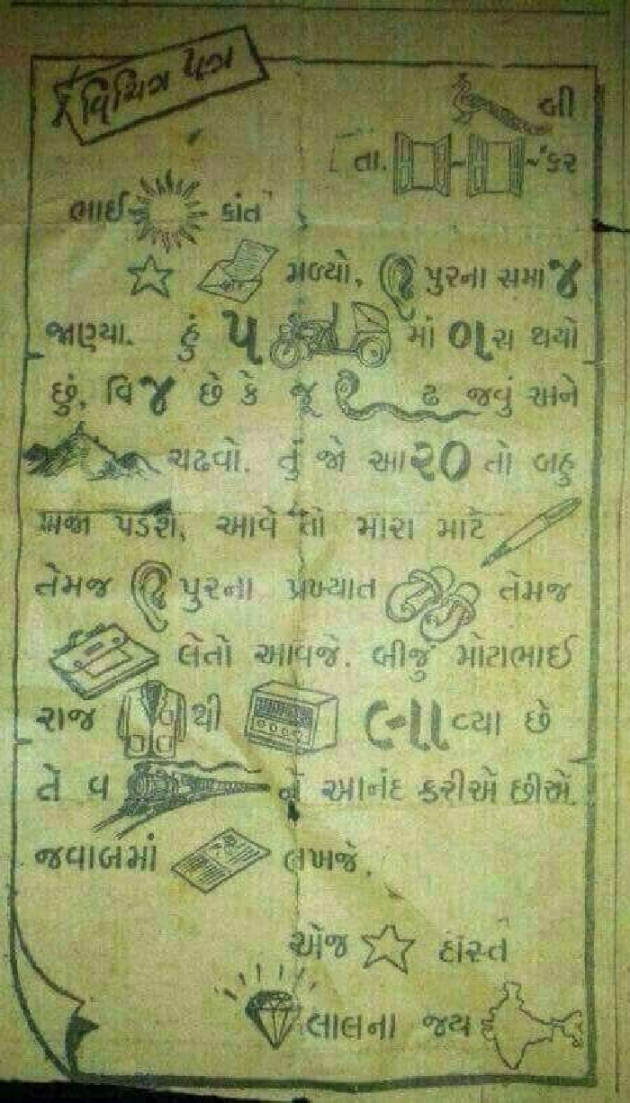 વિચિત્ર પત્ર
બી
તા. કર
ભાઈ કાંત
મળ્યો, પુરના સમા ૪
જાણ્યા. હું ૫ માં ૦ા સ થયો
છું, વિ ૪ છે કે જૂ ઢ જવું અને
ચઢવો. તું જો આ ૨૦ તો બહુ
મજા પડશે, આવે તો મારા માટે
તેમજ પુરના પ્રખ્યાત તેમજ
લેતો આવજે. બીજું મોટાભાઈ
રાજ થી ૯-ાા વ્યા છે
તે વ ને આનંદ કરીએ છીએ.
જવાબમાં લખજે.
એજ દોસ્ત
લાલના જય